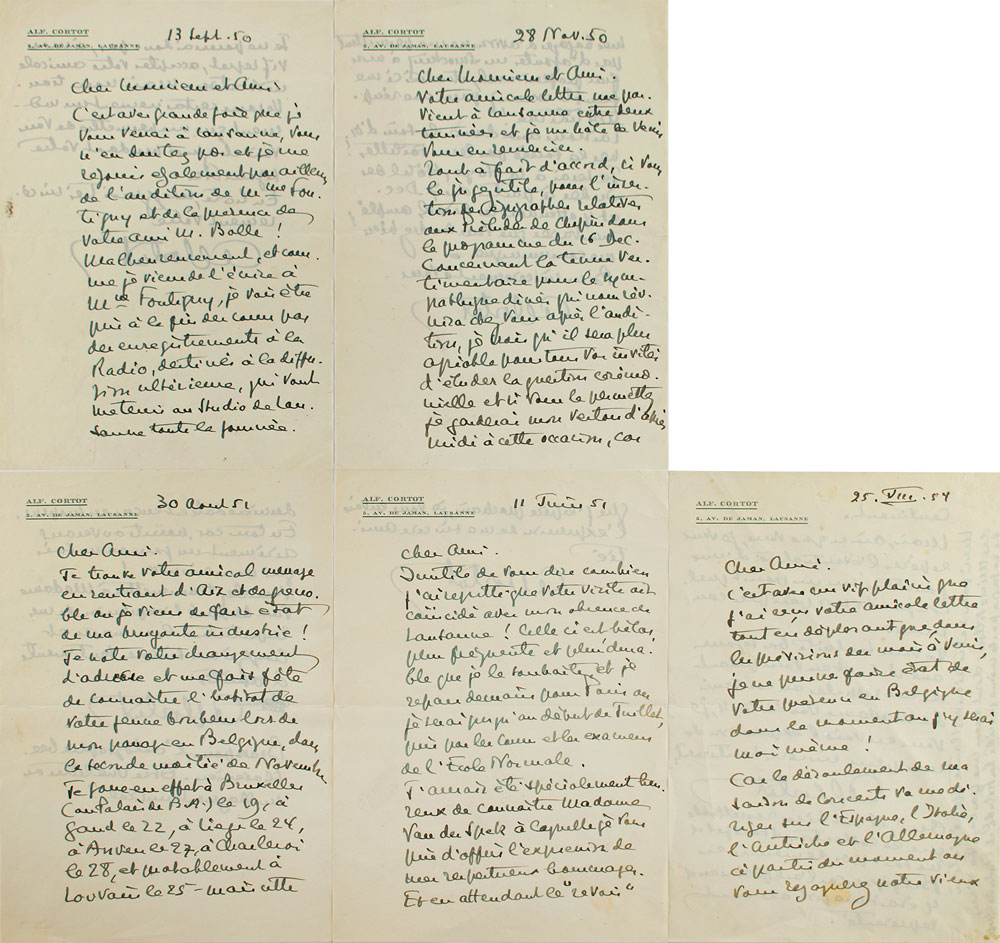 ALF. CORTOT
5, AV. DE JAMAN, LAUSANNE
13 Sept. 50
Cher Monsieur et Ami
C'est avec grande joie que je
vous verrai à Lausanne, vous
n'en doutez pas et je me
réjouis également par ailleurs
de l'audition de Mme Fon-
tigny et de la présence de
votre ami M. Bolle !
Malheureusement, et com-
me je viens de l'écrire à
Mme Fontigny, je vais être
pris à la fin des cours par
des enregistrements à la
Radio, destinés à la diffu-
sion ultérieure, qui vont
me tenir au Studio de Lau-
sanne toute la journée.
ALF. CORTOT
5, AV. DE JAMAN, LAUSANNE
28 Nov. 50
Cher Monsieur et Ami.
Votre amicale lettre me par-
vient à Lausanne entre deux
tournées et je me hâte de venir
vous en remercier.
Tout à fait d'accord, si vous
le jugez utile, pour l'inser-
tion des épigraphes relatives
aux Préludes de Chopin dans
le programme du 16 Dec.
Concernant la tenue ves-
timentaire pour le sym-
pathique dîner qui nous réu-
nira chez vous après l'audi-
tion, je crois qu'il sera plus
agréable pour tous vos invités
d'éluder la question cérémo-
nielle et si vous le permettez
je garderai mon veston d'après
midi à cette occasion, car
ALF. CORTOT
5, AV. DE JAMAN, LAUSANNE
30 Aout 51
Cher Ami.
Je trouve votre amical message
en rentrant d'Aix et de Greno-
ble où je viens de faire état
de ma bruyante industrie !
Je note votre changement
d'adresse et me fais fête
de connaître l'habitat de
votre jeune bonheur lors de
mon passage en Belgique, dans
la seconde moitié de Novembre
Je joue en effet à Bruxelles
(au Palais de B.A.) le 19, à
Gand le 22, à Liège le 24,
à Anvers le 27, à Charleroi
le 28, et probablement à
Louvain le 25 - mais cette
ALF. CORTOT
5, AV. DE JAMAN, LAUSANNE
11 Juin 51
Cher Ami.
Inutile de vous dire combien
j'ai regretté que votre visite ait
coïncidé avec mon absence de
Lausanne ! Celle ci est hélas,
plus fréquente et plus dura-
ble que je le souhaite, et je
repars demain pour Paris où
je serai jusqu'au début de Juillet,
pris par les cours et les examens
de l'École Normale.
J'aurais été spécialement heu-
reux de connaître Madame
Van der Spek à laquelle je vous
prie d'offrir l'expression de
mes respectueux hommages.
Et en attendant le "revoir"
ALF. CORTOT
5, AV. DE JAMAN, LAUSANNE
25. VIII. 54
Cher Ami.
C'est avec un vif plaisir que
j'ai reçu votre amicale lettre
tout en déplorant que, dans
les prévisions des mois à venir,
je ne puisse faire état de
votre présence en Belgique
dans le moment où j'y serai
moi même !
Car le déroulement de ma
saison de Concerts va me di-
riger sur l'Espagne, l'Italie,
l'Autriche et l'Allemagne
à partir du moment où
vous regagnerez notre vieux